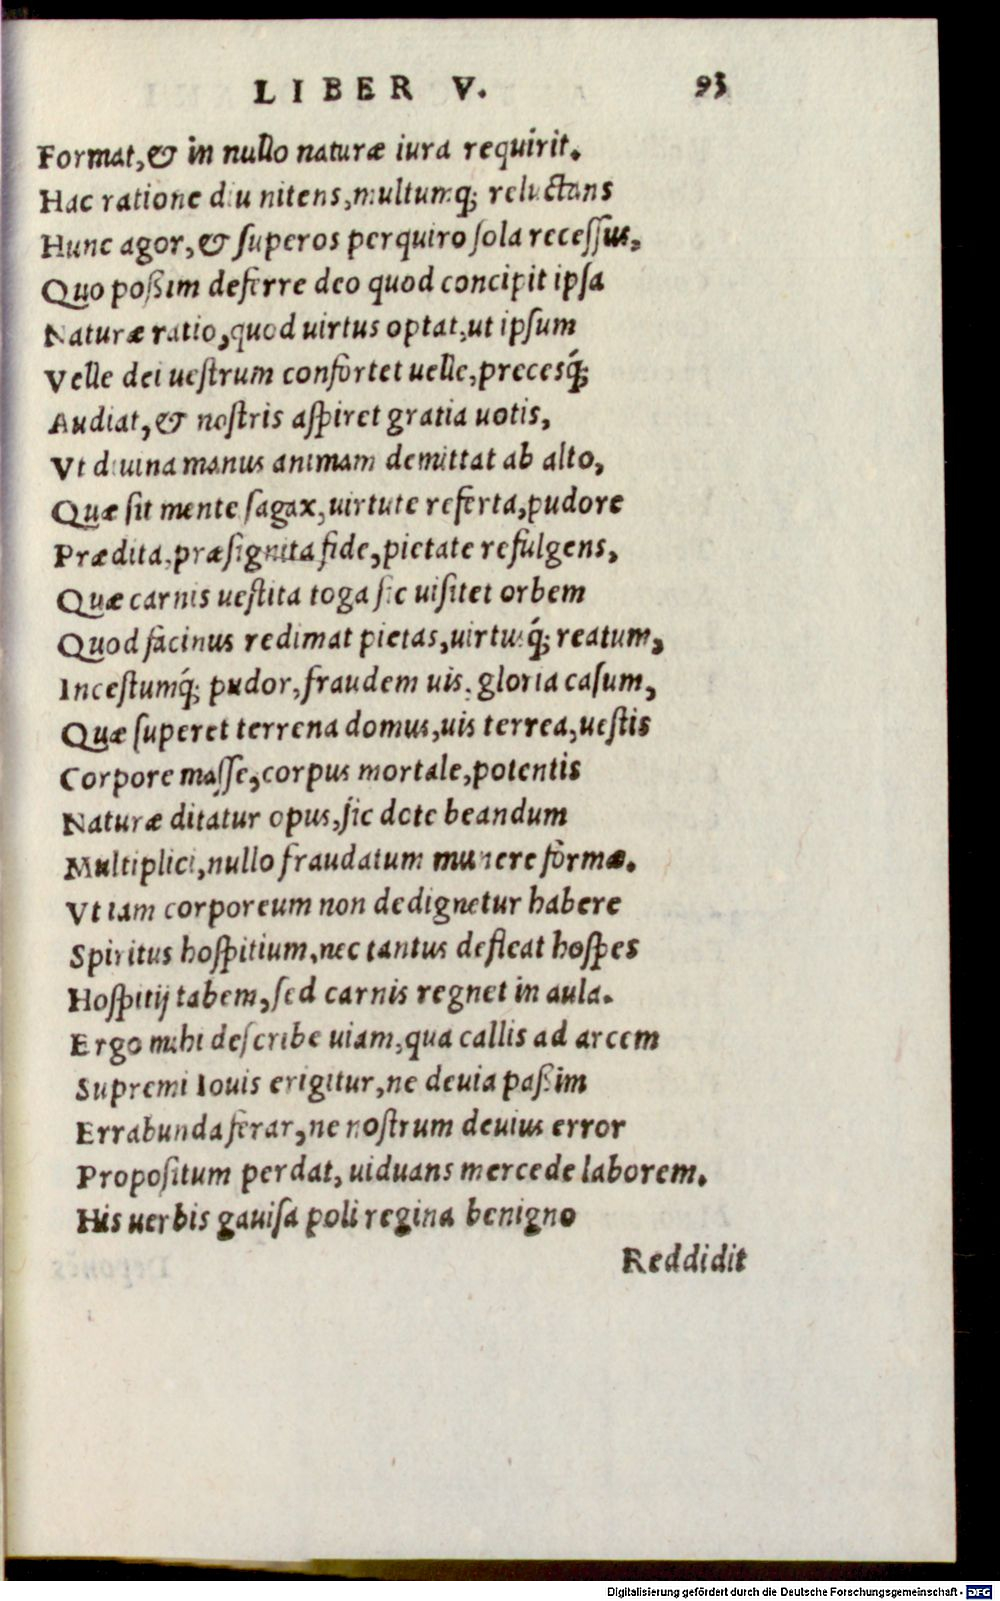 LIBER V. 93
Format, & in nullo naturæ iura requirit.
Hac ratione diu nitens, multumq́; reluctans
Hunc agor, & superos perquiro sola recessus,
Quo poßim deferre deo quod concipit ipsa
Naturæ ratio, quod uirtus optat, ut ipsum
Velle dei uestrum confortet uelle, precesq́;
Audiat, & nostris aspiret gratia uotis,
Vt diuina manus animam demittat ab alto,
Quæ sit mente sagax, uirtute referta, pudore
Prædita, præsignita fide, pietate refulgens,
Quæ carnis uestita toga sic uisitet orbem
Quod facinus redimat pietas, uirtusq́; reatum,
Incestumq́; pudor, fraudem uis. gloria casum,
Quæ superet terrena domus, uis terrea, uestis
Corpore masse, corpus mortale, potentis
Naturæ ditatur opus, sic dote beandum
Multiplici, nullo fraudatum munere formæ.
Vt iam corporeum non dedignetur habere
Spiritus hospitium, nec tantus defleat hospes
Hospitij tabem, sed carnis regnet in aula.
Ergo mihi describe uiam, qua callis ad arcem
Supremi Iouis erigitur, ne deuia paßim
Errabunda ferar, ne nostrum deuius error
Propositum perdat, uiduans mercede laborem.
His uerbis gauisa poli regina benigno
Reddidit
Digitalisierung gefördert durch die Deutsche Forschungsgemeinschaft - DFG